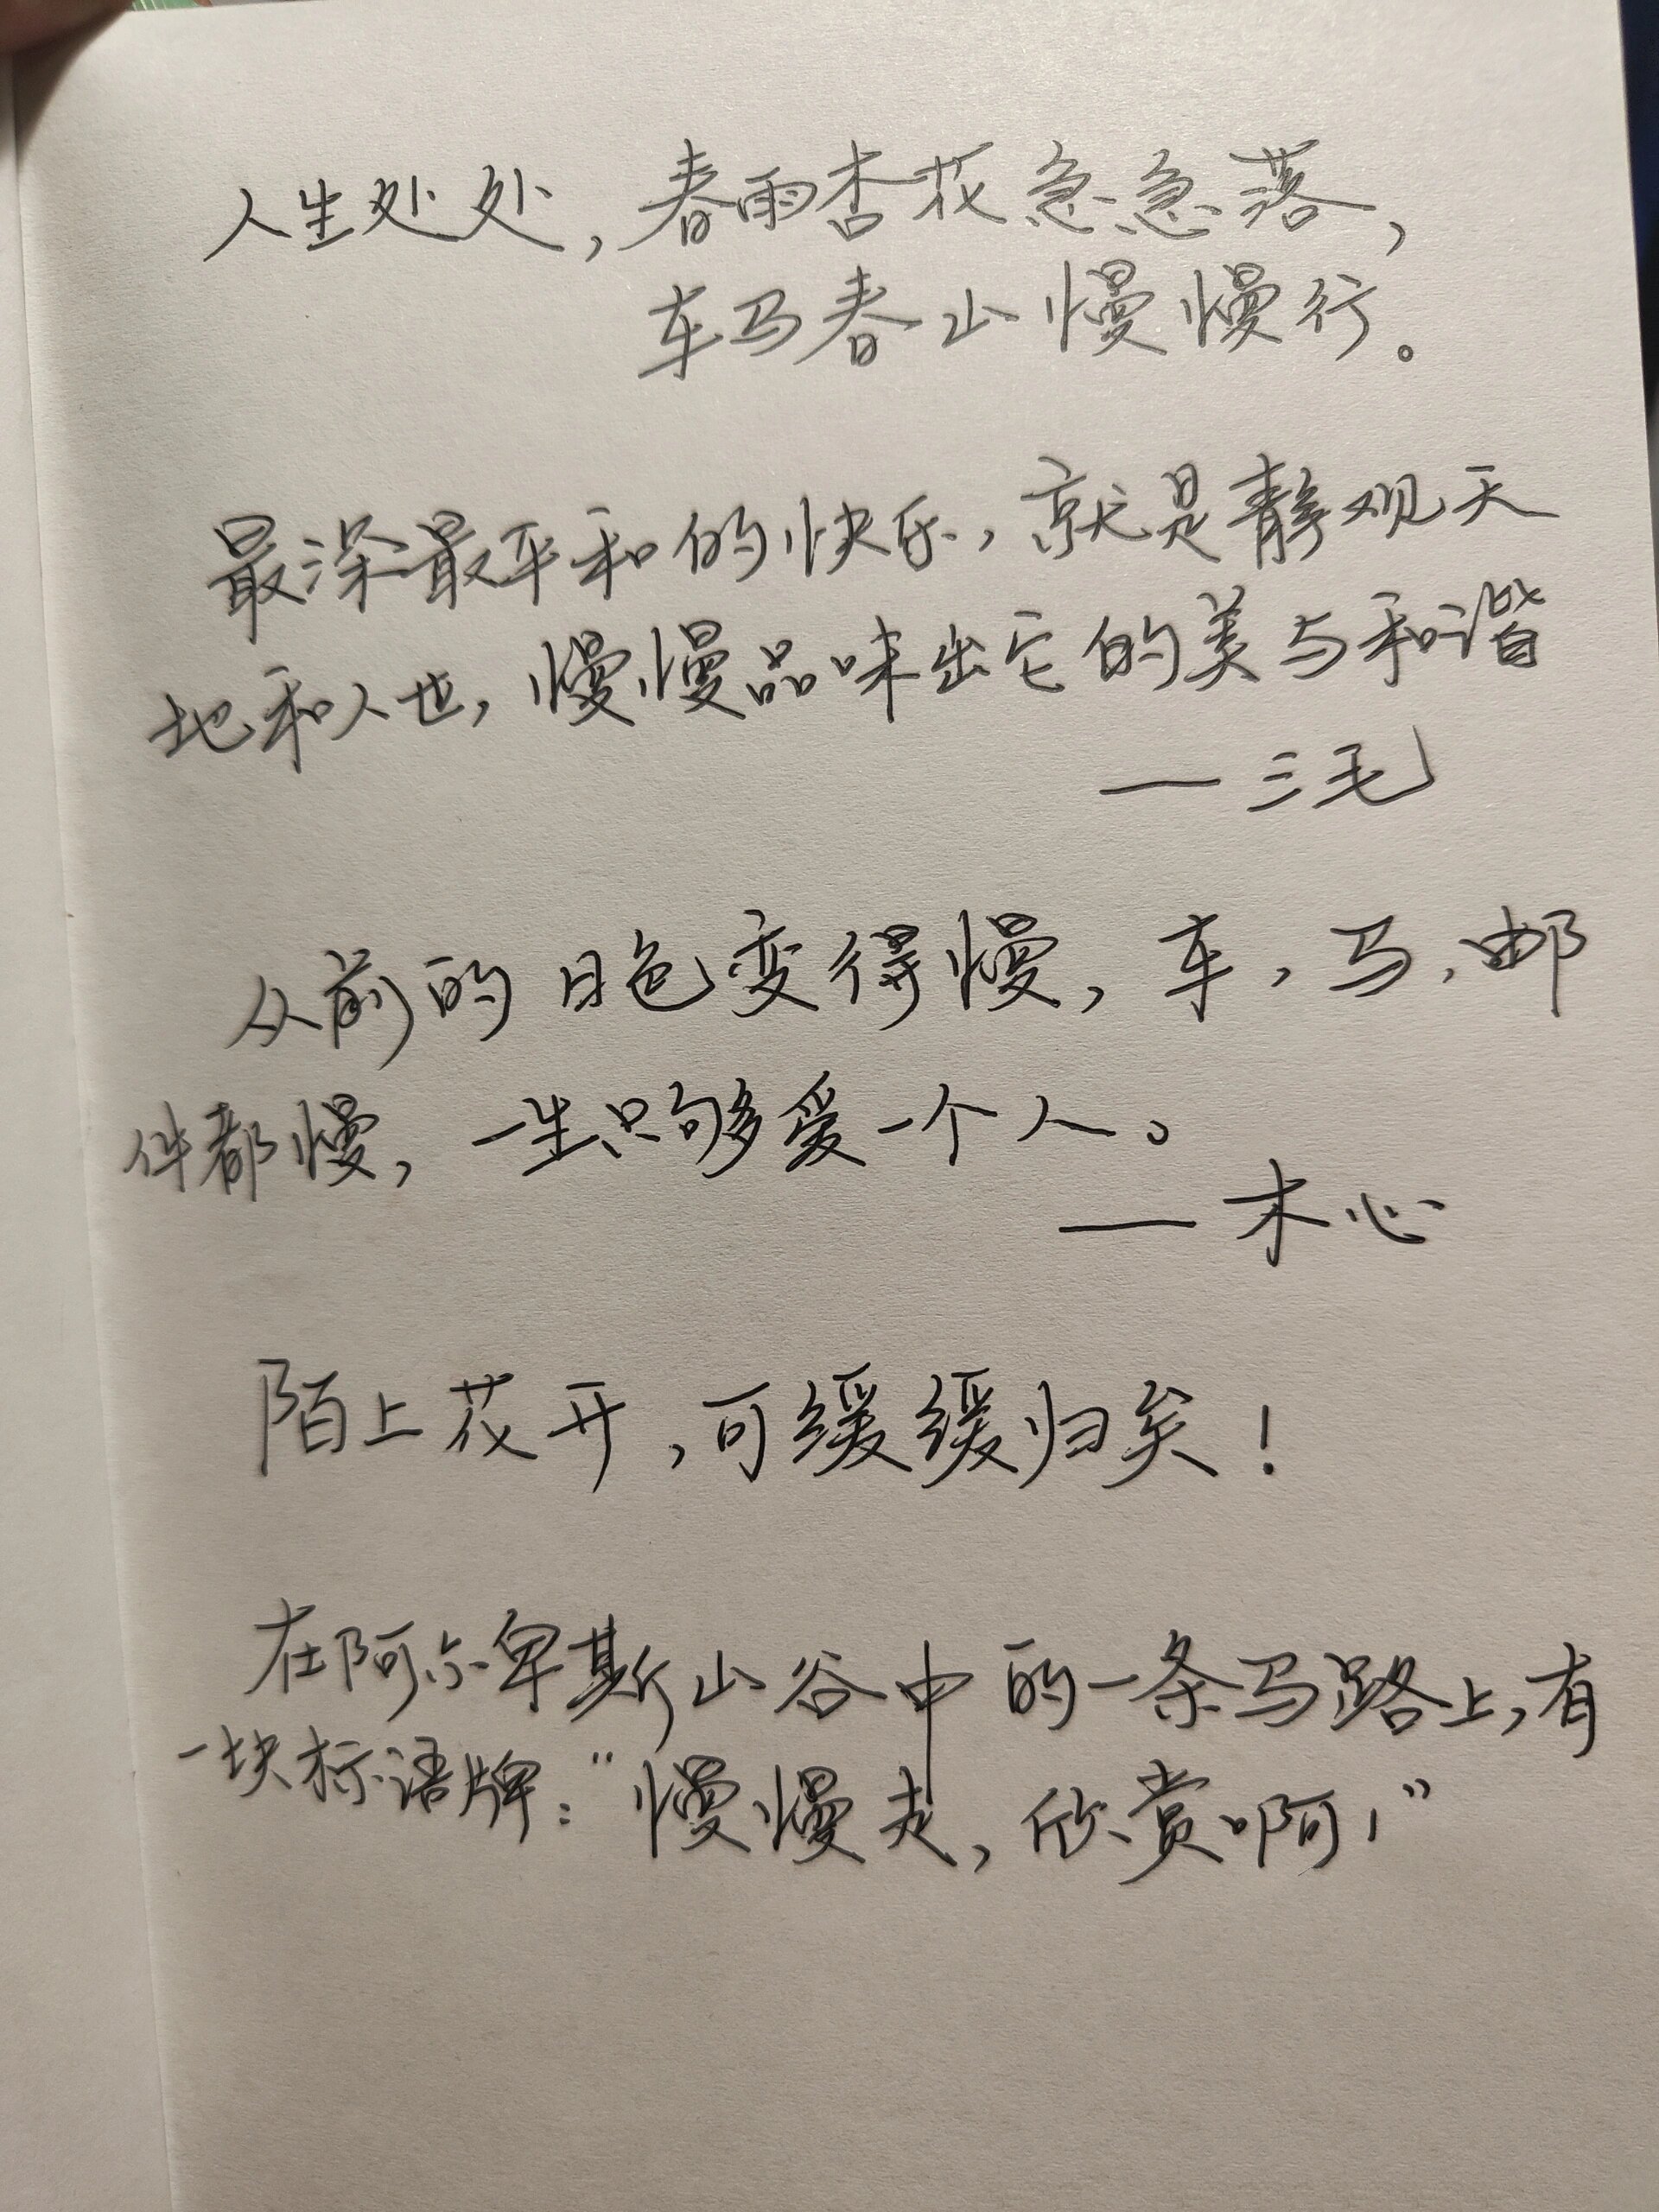 人生处处,春雨杏花急急落,
车马春山慢慢行。
最深最平和的快乐,就是静观天
地和人世,慢慢品味出它的美与和谐
— 三毛
从前的日色变得慢,车,马,邮
件都慢,一生只够爱一个人。
— 木心
陌上花开,可缓缓归矣!
在阿尔卑斯山谷中的一条马路上,有
一块标语牌:“慢慢走,欣赏啊!”